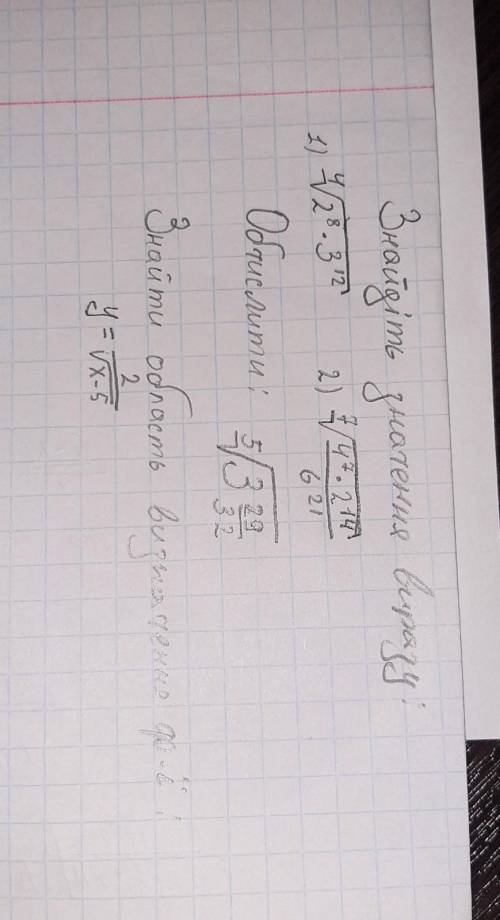 Знайдіть значення виразу:
1) ⁴√(2⁸·3¹²)  2) ⁷√(4⁷·2¹⁴/6²¹)
Обчислити: ⁵√(3 29/32)
Знайти область визначення ф-ї:
y = 2/√(x-5)